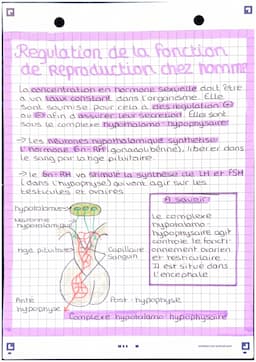 Regulation de la fonction
de Reproduction chez homme
La concentration en hormone sexuelle doit être
à un taux constant dans l'organisme. Elle
sont soumise pour cela à des régulation ⊕
ou ⊖ afin d'assurer leur secretion. Elles sont
sous le complexe hypothalamo-hypophysaire
→ Les neurones hypothalamique synthétise
l'hormone Gn-RH (gonadolibérine), libérer dans
le sang par la tige pituitaire.
→ la Gn-RH va stimulé la synthèse de LH et FSH
(dans l'hypophyse) qui vont agir sur les
testicules et ovaires.
hypotalamus
Neurone
hypotalamique
Tige pituitaire
Capillaire
Sanguin
Anté
hypophyse
Post-hypophyse
Complexe hypotalamo hypophysaire
A savoir
Le complexe
hypotalamo-
hypophysaire agit
controle le foncti-
onnement ovarien
et testiculaire.
Il est situé dans
l'encephale